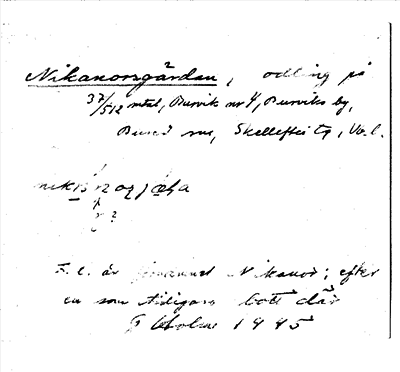 Nikanorsgården, odling på
37/512 mtl, Burvik nr 4, Burviks by,
Bureå sn, Skellefteå tg, Vb. l.
?
F. l. är mansnamnet Nikanor; efter
en som tidigare bott där
G Holm 1945